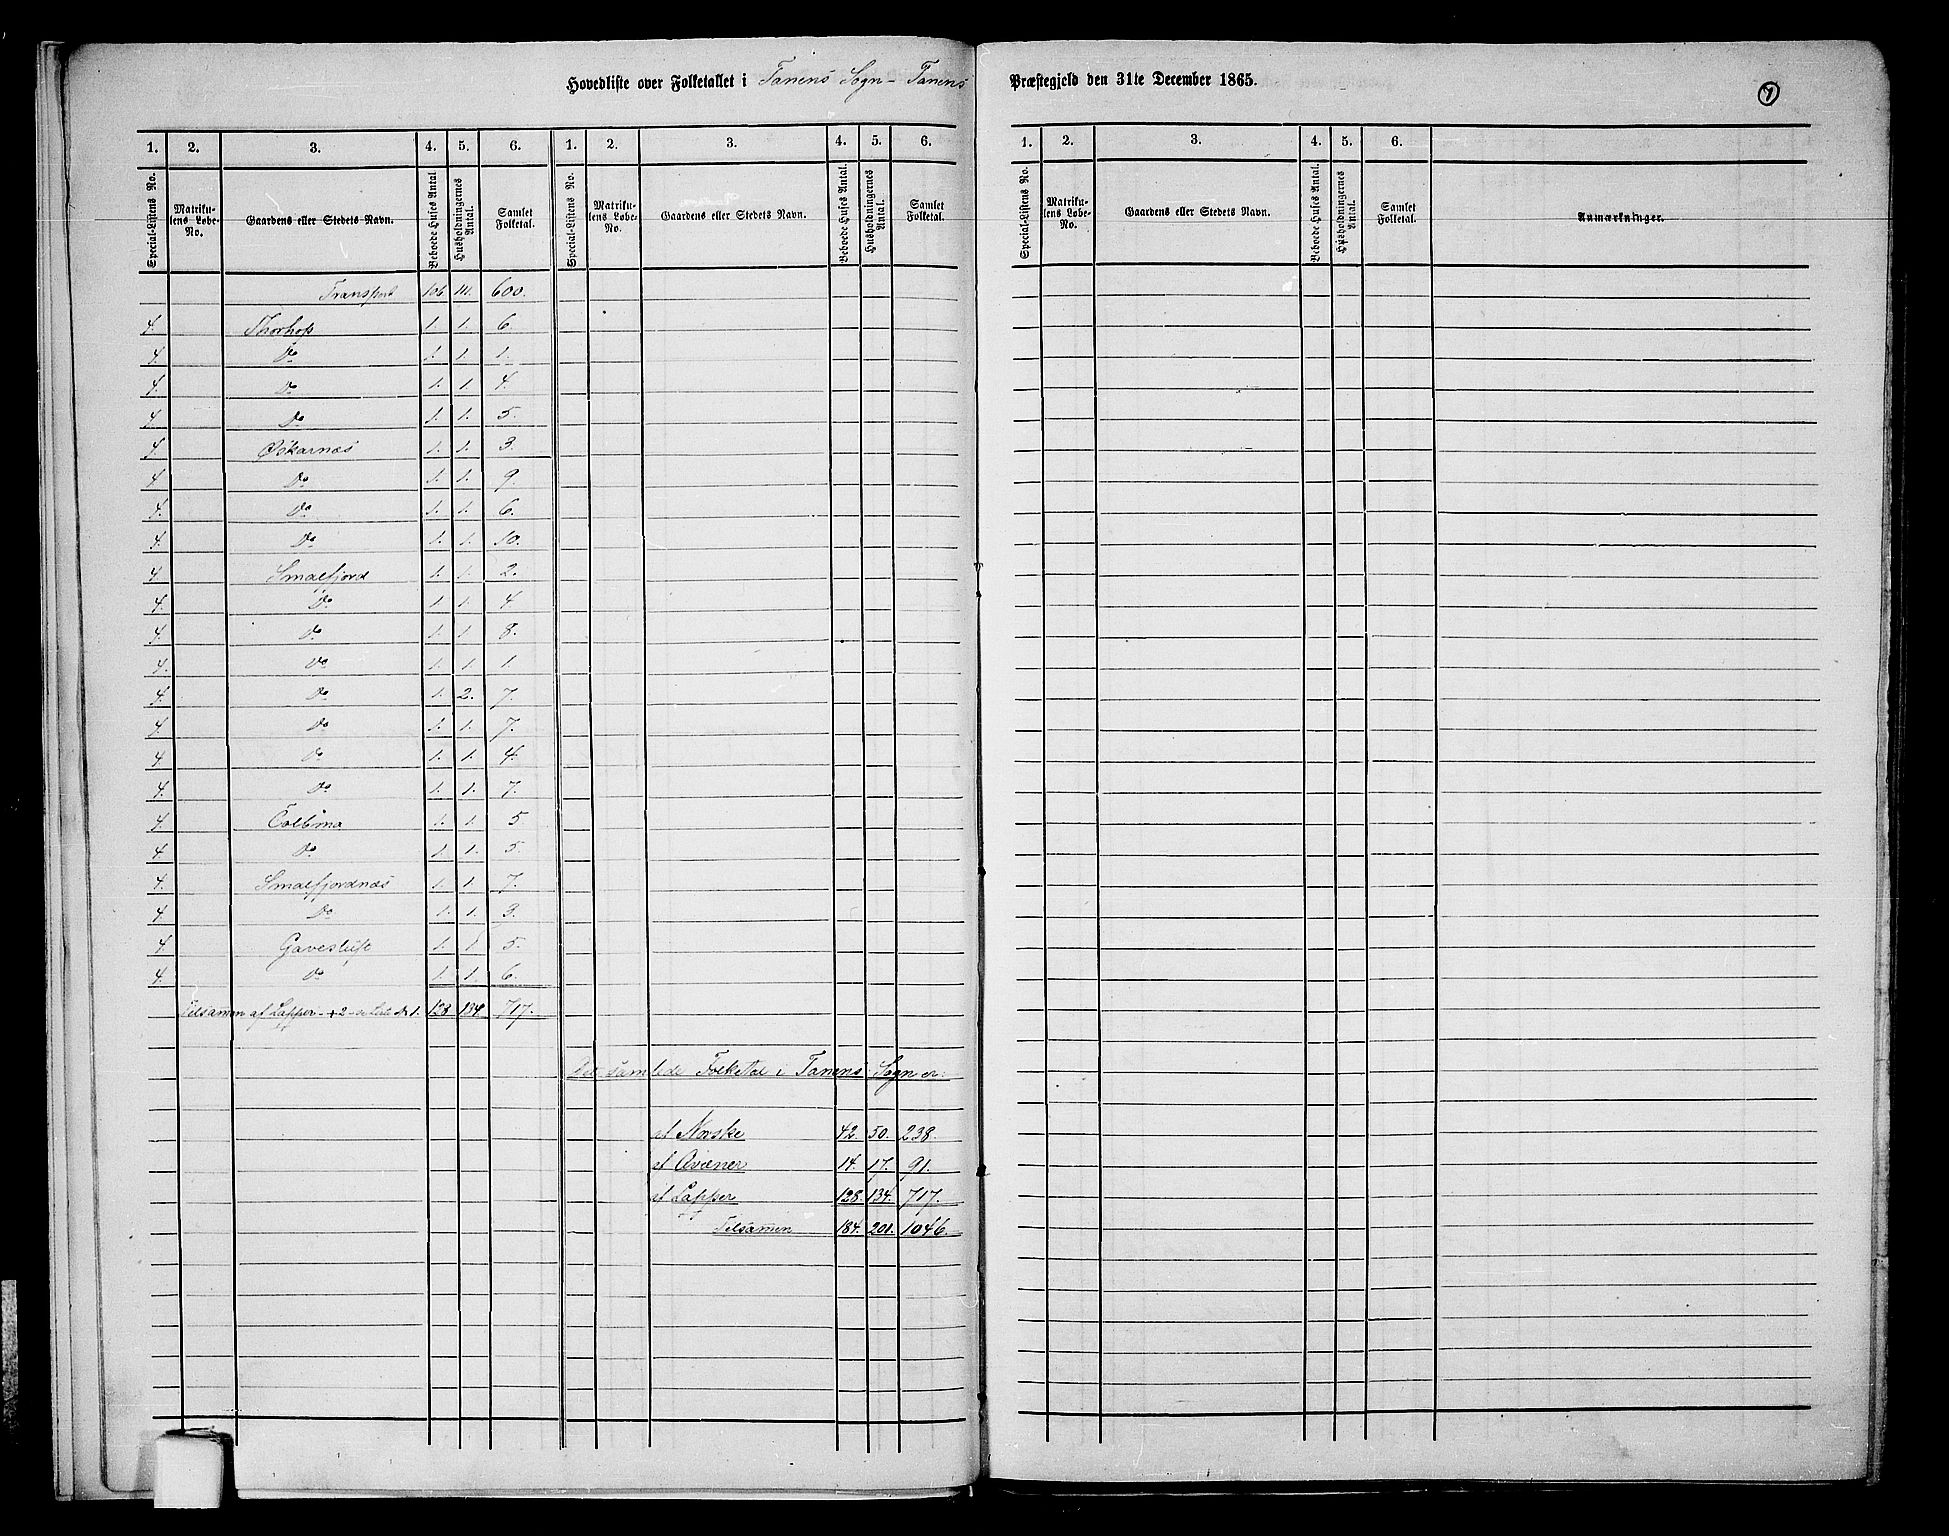 Hovedliste over Folketallet i Tanens Sogn - Tanens Præstegjeld den 31te December 1865.
7
1. 2. 3. 4. 5. 6. 1. 2. 3. 4. 5. 6.
Special-Listens No. Matrikulens Løbe-No. Gaardens eller Stedets Navn. Beboede Huses Antal Husholdningernes Antal. Samlet Folketal. Special-Listens No. Matrikulens Løbe-No. Gaardens eller Stedets Navn. Beboede Huses Antal. Husholdningernes Antal. Samlet Folketal.
Transport 106. 111. 600.
4. Thorhop 1. 1. 6.
4. Do 1. 1. 1.
4. Do 1. 1. 4.
4. Do 1. 1. 5.
4. Øskarnæs 1. 1. 3.
4. Do 1. 1. 9.
4. Do 1. 1. 6.
4. Do 1. 1. 10.
4. Smalfjord 1. 1. 2.
4. Do 1. 1. 4
4. Do 1. 1. 8.
4. Do 1. 1. 1.
4. Do 1. 2. 7.
4. Do 1. 1. 7.
4. Do 1. 1. 4.
4. Do 1. 1. 7.
4. 1. 1. 5
4. Do 1. 1. 5.
4. Smalfjordnæs 1. 1. 7.
4. Do 1. 1. 3.
4. 1. 1. 5.
4. Do 1. 1. 6.
Tilsamen af Lapper - 128 134 717.
Det samlede Folketal i Tanens Sogn er:
af Norske 42. 50. 238.
af Qvæner 14. 17. 91.
af Lapper 128. 134. 717.
Tilsamen 184. 201. 1046.
1. 2. 3. 4. 5. 6.
Special-Listens No. Matrikulens Løbe-No. Gaardens eller Stedets Navn. Beboede Huses Antal. Husholdningernes Antal. Samlet Folketal. Anmærkninger.